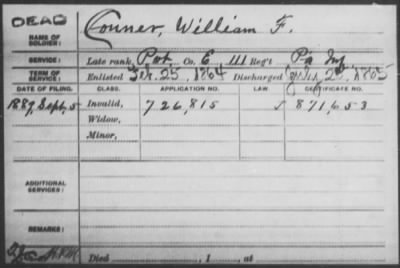 DEAD
NAME OF SOLDIER: Conner, William F.
SERVICE: Late rank, Pvt. Co. E, 111 Reg't Pa Inf
TERM OF SERVICE: Enlisted Feb. 25, 1864 Discharged July 25, 1865
DATE OF FILING. CLASS. APPLICATION NO. LAW. CERTIFICATE NO.
1889, Sept. 5 Invalid, 726,815 871,653
Widow,
Minor,
ADDITIONAL SERVICES:
REMARKS:
Died , 1 , at